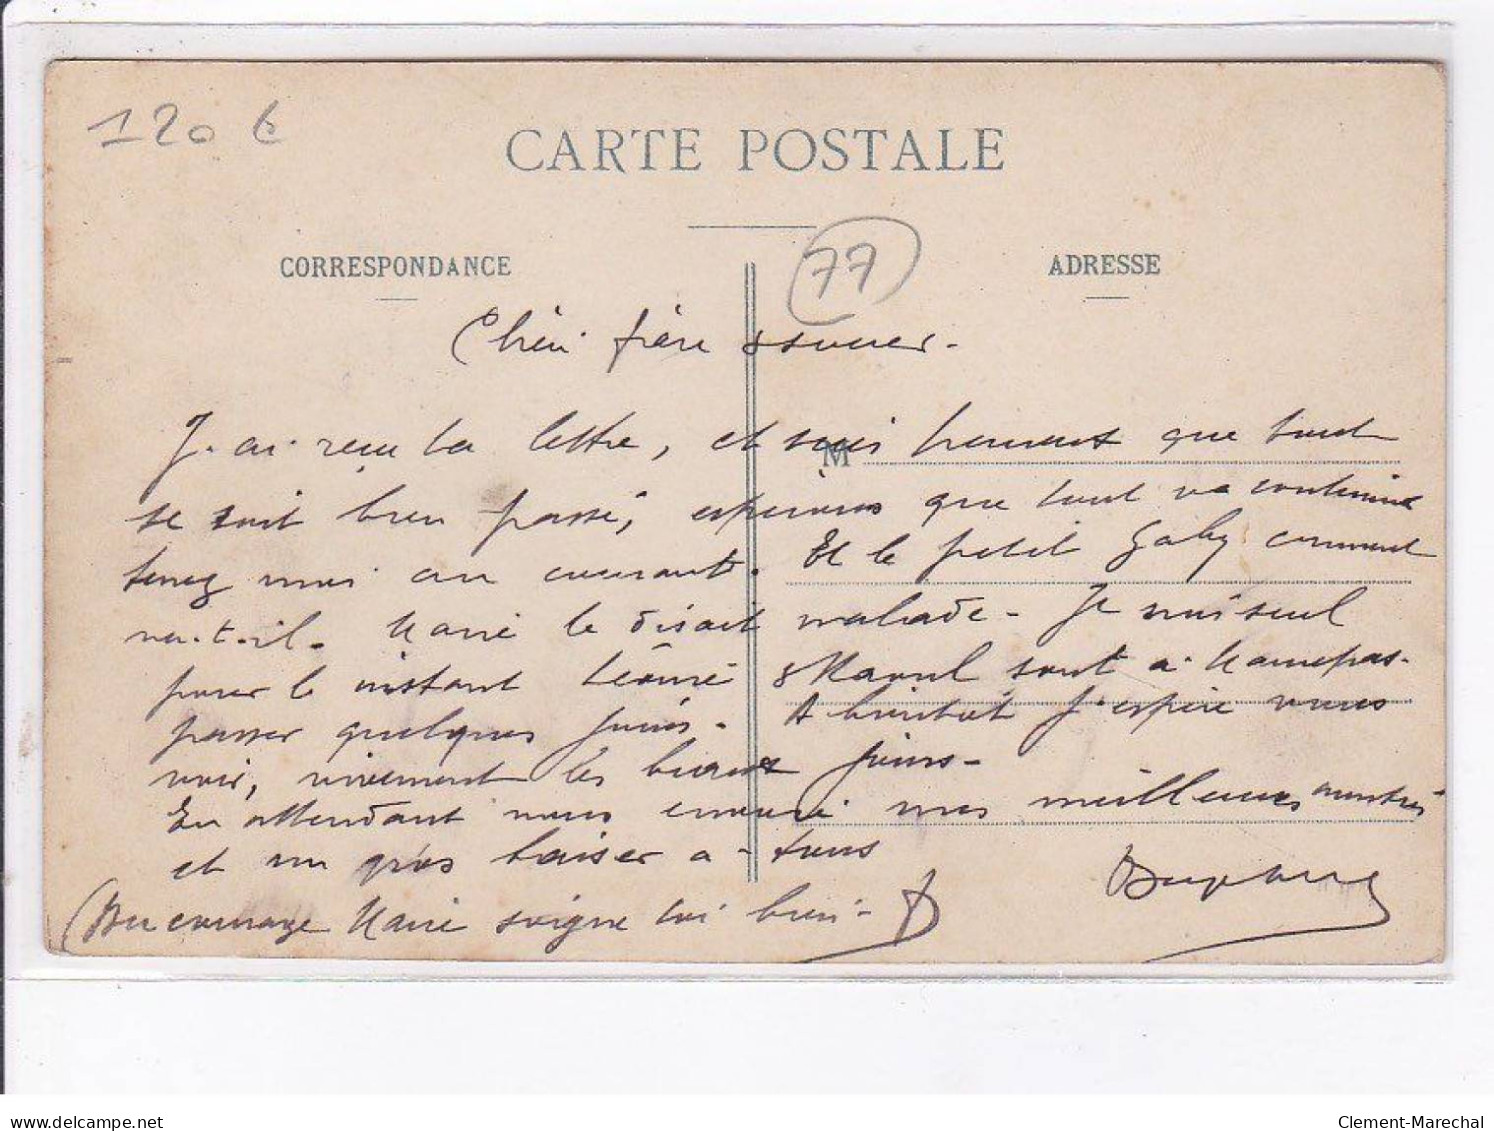 120 €
CARTE POSTALE
77
CORRESPONDANCE
ADRESSE
Chéri frère & soeur -
M
J'ai reçu ta lettre, et suis heureux que tout
se soit bien passé, espérons que tout va continuer
tenez moi au courant. Et le petit Gaby comment
va-t-il. Marie le disait malade - Je suis seul
pour le instant & Raoul sont a
passer quelques jours - A bientôt j'espère vous
voir, vivement les beaux jours -
En attendant vous envoie mes meilleures amitiés
et un gros baiser a - tous
(Bu courage Marie soigne toi bien -
delcampe.net
Clement-Marechal